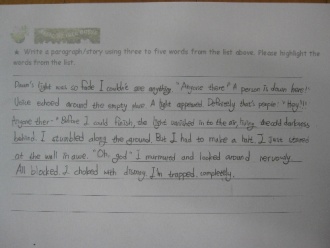 a. Write a paragraph/story using three to five words from the list above. Please highlight the
words from the list.
Dawn's light was so fade I couldn't see anything. "Anyone there? A person is down here!"
Voice echoed around the empty place. A light appeared. Definitely that's people. "Hey!!
Anyone ther-" Before I could finish, the light vanished into the air, living the cold darkness
behind. I stumbled along the ground. But I had to make a halt. I just
at the wall in awe. "Oh, god" I murmured and looked around nervously.
All blocked. I choked with dismay. I'm trapped, completely.